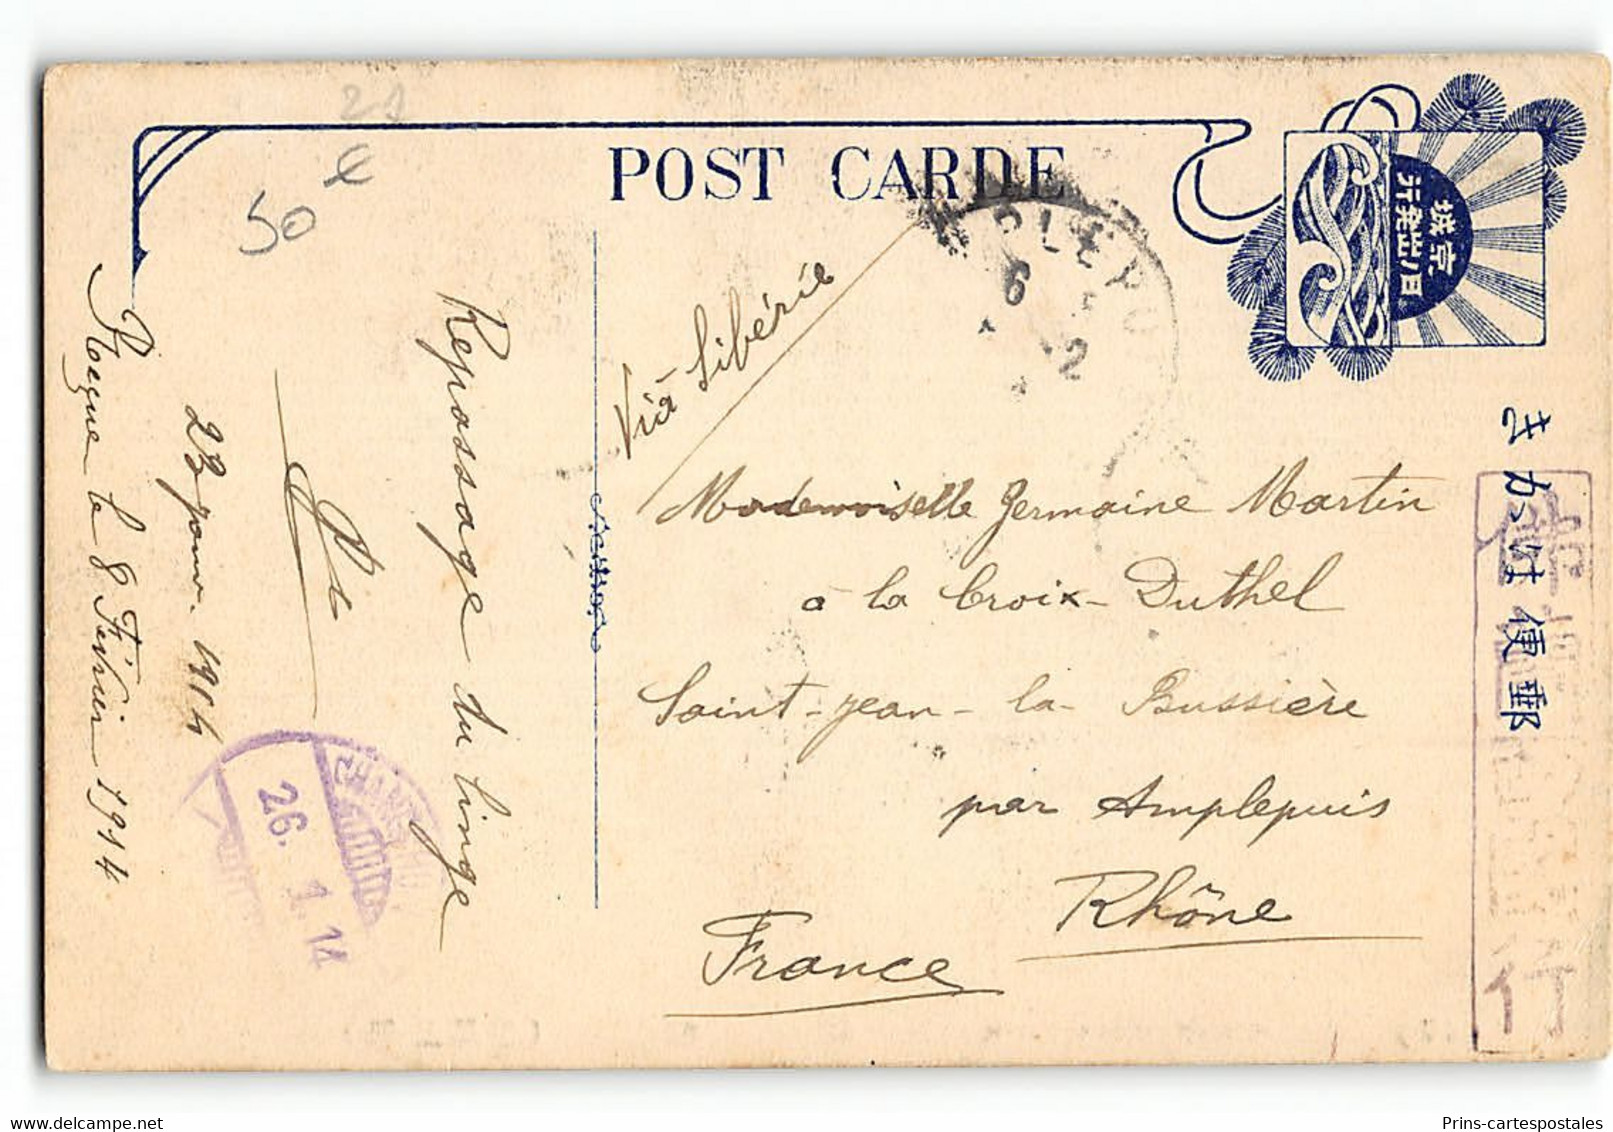 21
50 €
POST CARDE
京城
日之出商行
きがは便郵
Via Sibérie
Mademoiselle Germaine Martin
à la Croix-Duthel
Saint-Jean-la-Bussière
par Amplepuis
Rhône
France
Repassage du linge
23 janv. 1914
Reçue le 8 Février 1914
SHANGHAI
26. 1. 14
AMPLEPUIS
6
2
行
Prins-cartespostales